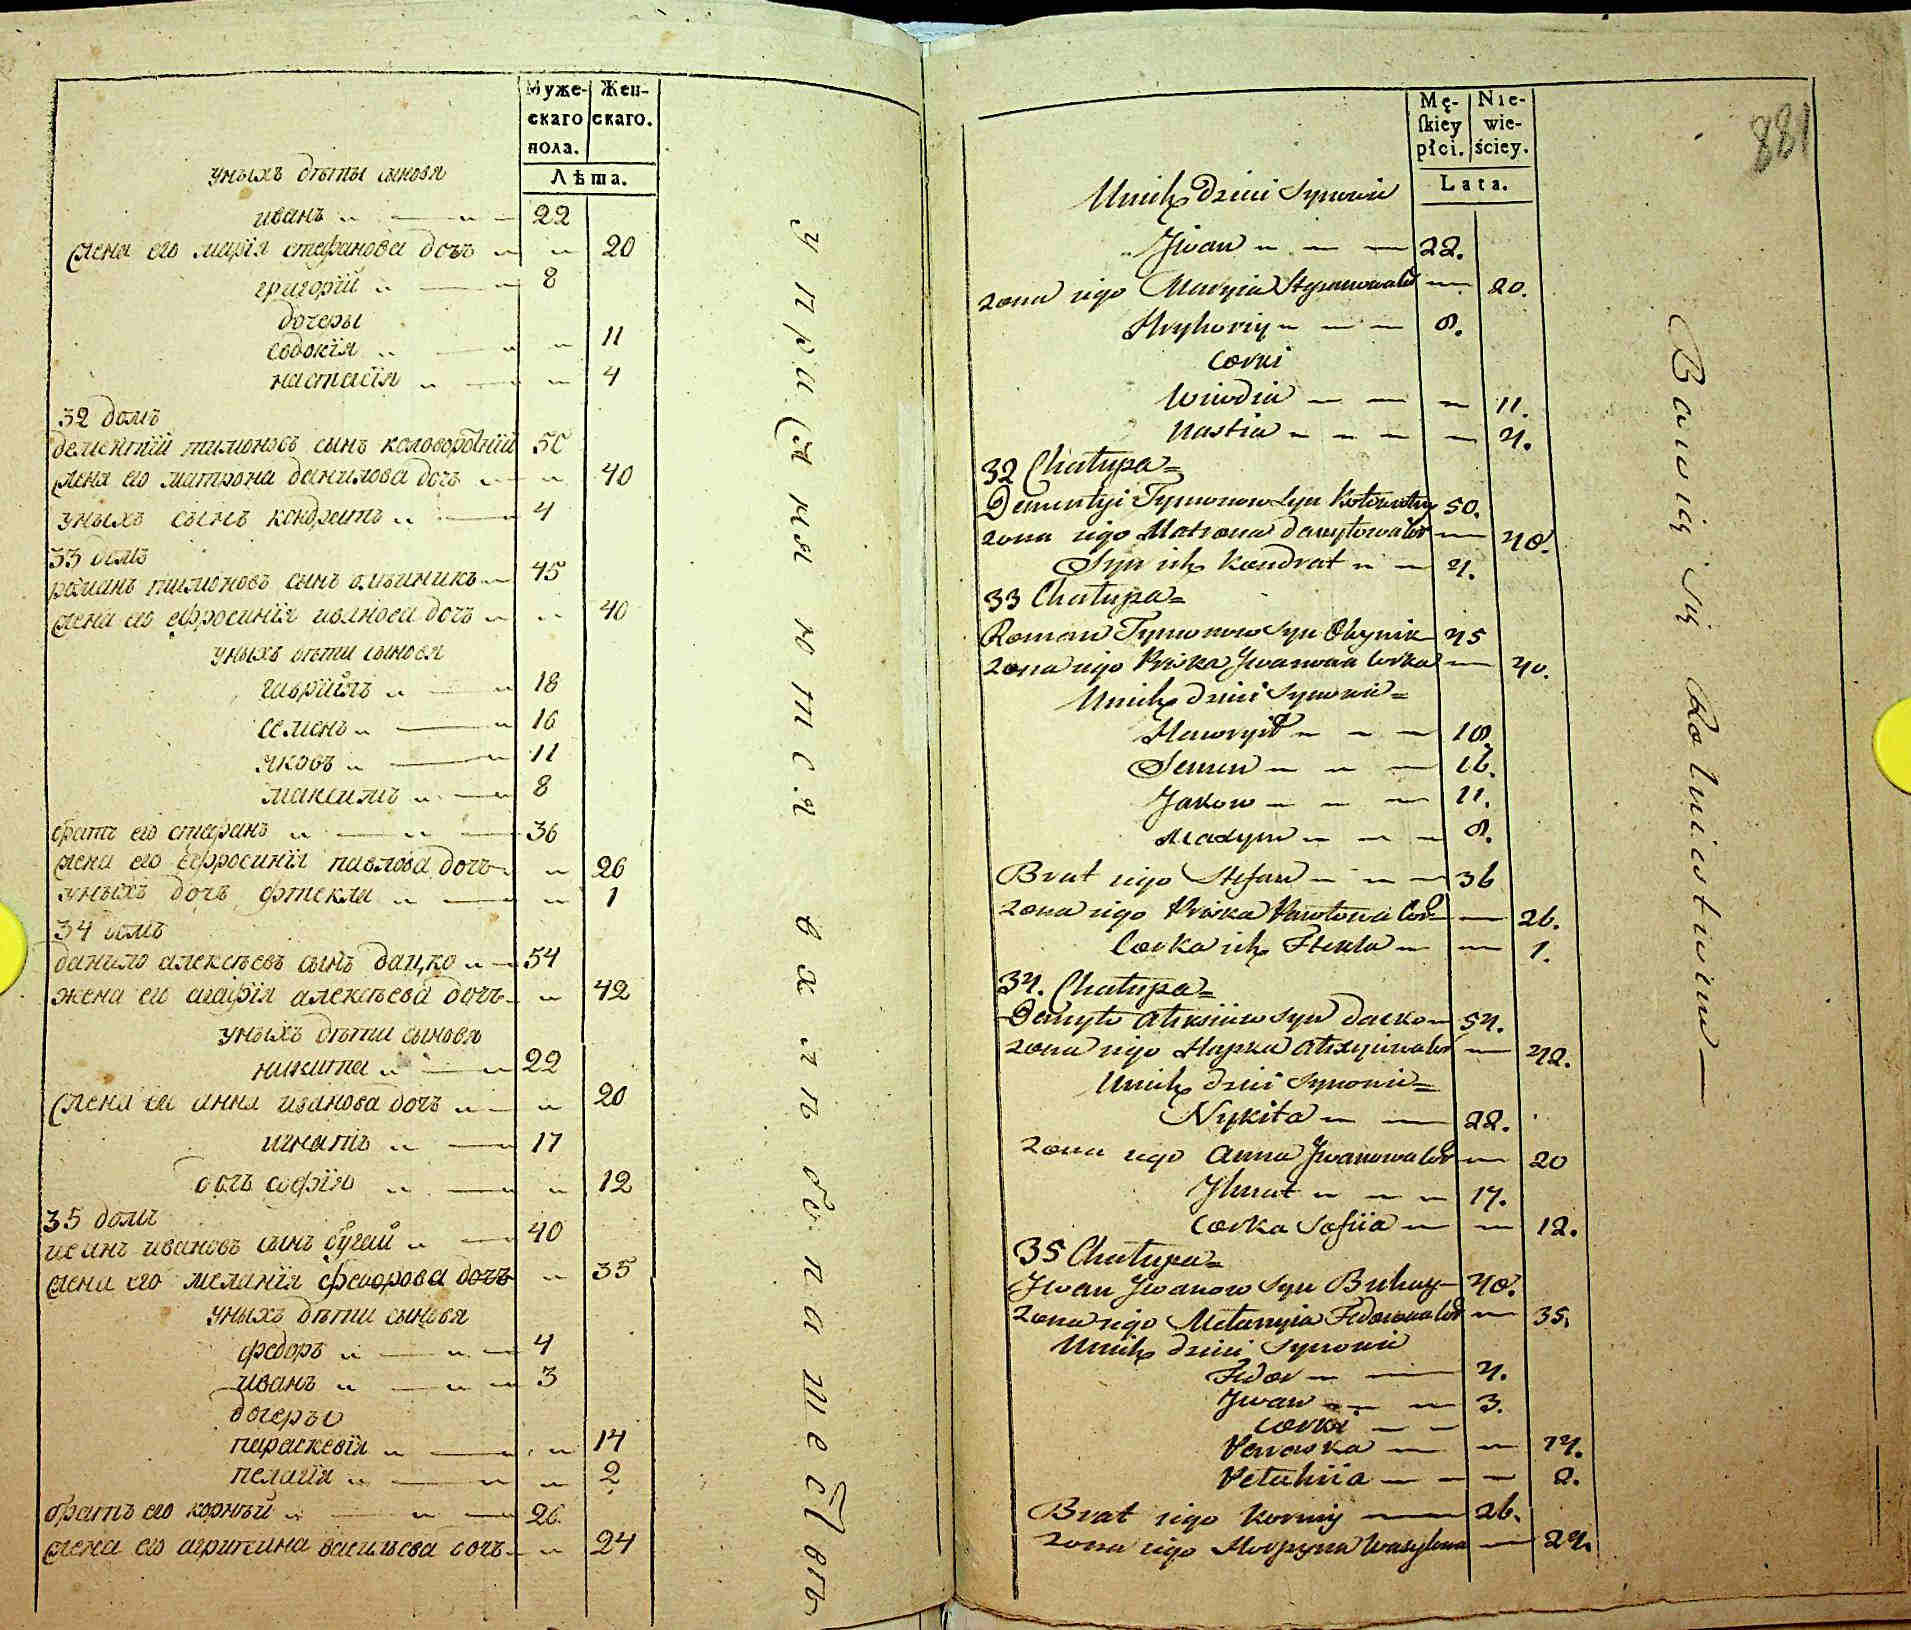 Муже-
скаго
пола.
Жен-
скаго.
Лѣта.
уныхъ дѣти сыновя
иванъ 22
жена его марія стефанова дочъ 20
григорій 8
дочеры
евдокія 11
настасія 4
32 домъ
дементій тимоновъ сынъ 50
жена его матрона данилова дочъ 40
уныхъ сынъ кондратъ 4
33 домъ
романъ тимоновъ сынъ олѣйникъ 45
жена его ефросинія иванова дочъ 40
уныхъ дѣти сыновя
гаврійлъ 18
семенъ 16
яковъ 11
максимъ 8
братъ его стефанъ 36
жена его ефросинія павлова дочъ 26
уныхъ дочъ фтекла 1
34 домъ
данило алексѣевъ сынъ дацко 54
жена его агафія алексѣева дочъ 42
уныхъ дѣти сыновя
никита 22
жена его анна иванова дочъ 20
игнатъ 17
дочъ софія 12
35 домъ
иванъ ивановъ сынъ бугай 40
жена его меланія федорова дочъ 35
уныхъ дѣти сыновя
федоръ 4
иванъ 3
дочеры
параскевія 14
пелагія 2
братъ его корнѣй 26
жена его агрипина васильева дочъ 24
упражняются вхлѣбопашествѣ
Mę-
skiey
płci.
Nie-
wie-
ściey.
Lata.
881
Unich Dzieci Synowie
Jwan 22.
żona iego Maryia 20.
Hryhoriy 8.
Corki
Wiwdia 11.
Nastia 4.
32 Chałupa
Dementyi Tymonow Syn 50.
żona iego Matrona Danyłowa Cor 40.
Syn ich Kondrat 4.
33 Chałupa
Roman Tymonow Syn Oliynik 45
żona iego Priska Jwanowa Corka 40.
Unich dzieci Synowie
Hawryił 18
Semen 16.
Jakow 11.
Maxym 8.
Brat iego Stefan 36
żona iego Priska Pawłowa Cor 26.
Corka ich Ftekla 1.
34. Chałupa
Danyło Alexiiew Syn Dacko 54.
żona iego Hapka Alexyiewa Cor 42.
Unich dzieci Synowie
Nykita 22.
żona iego Anna Jwanowa Cor 20
Jhnat 17.
Corka Sofiia 12.
35 Chałupa
Jwan Jwanow Syn Buhay 40.
żona iego Mełanyia Fedorowa Cor 35.
Unich dzieci Synowie
Fedor 4.
Jwan 3.
Corki
Paraska 14.
Pelahiia 2.
Brat iego Korniy 26.
żona iego Horpyna Wasylowa 24.
Bawią się Rolnictwem